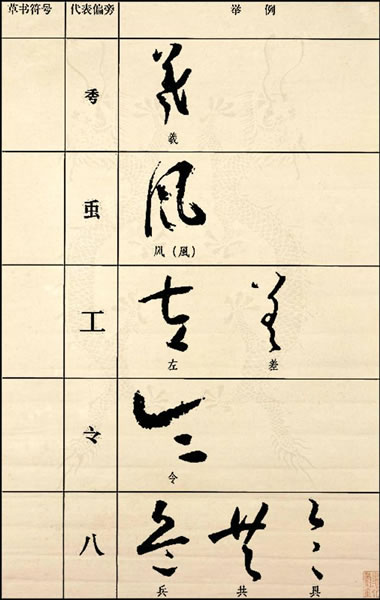 草书符号 代表偏旁 举例
羲
风(風)
工 左 差
令
八 兵 共 具